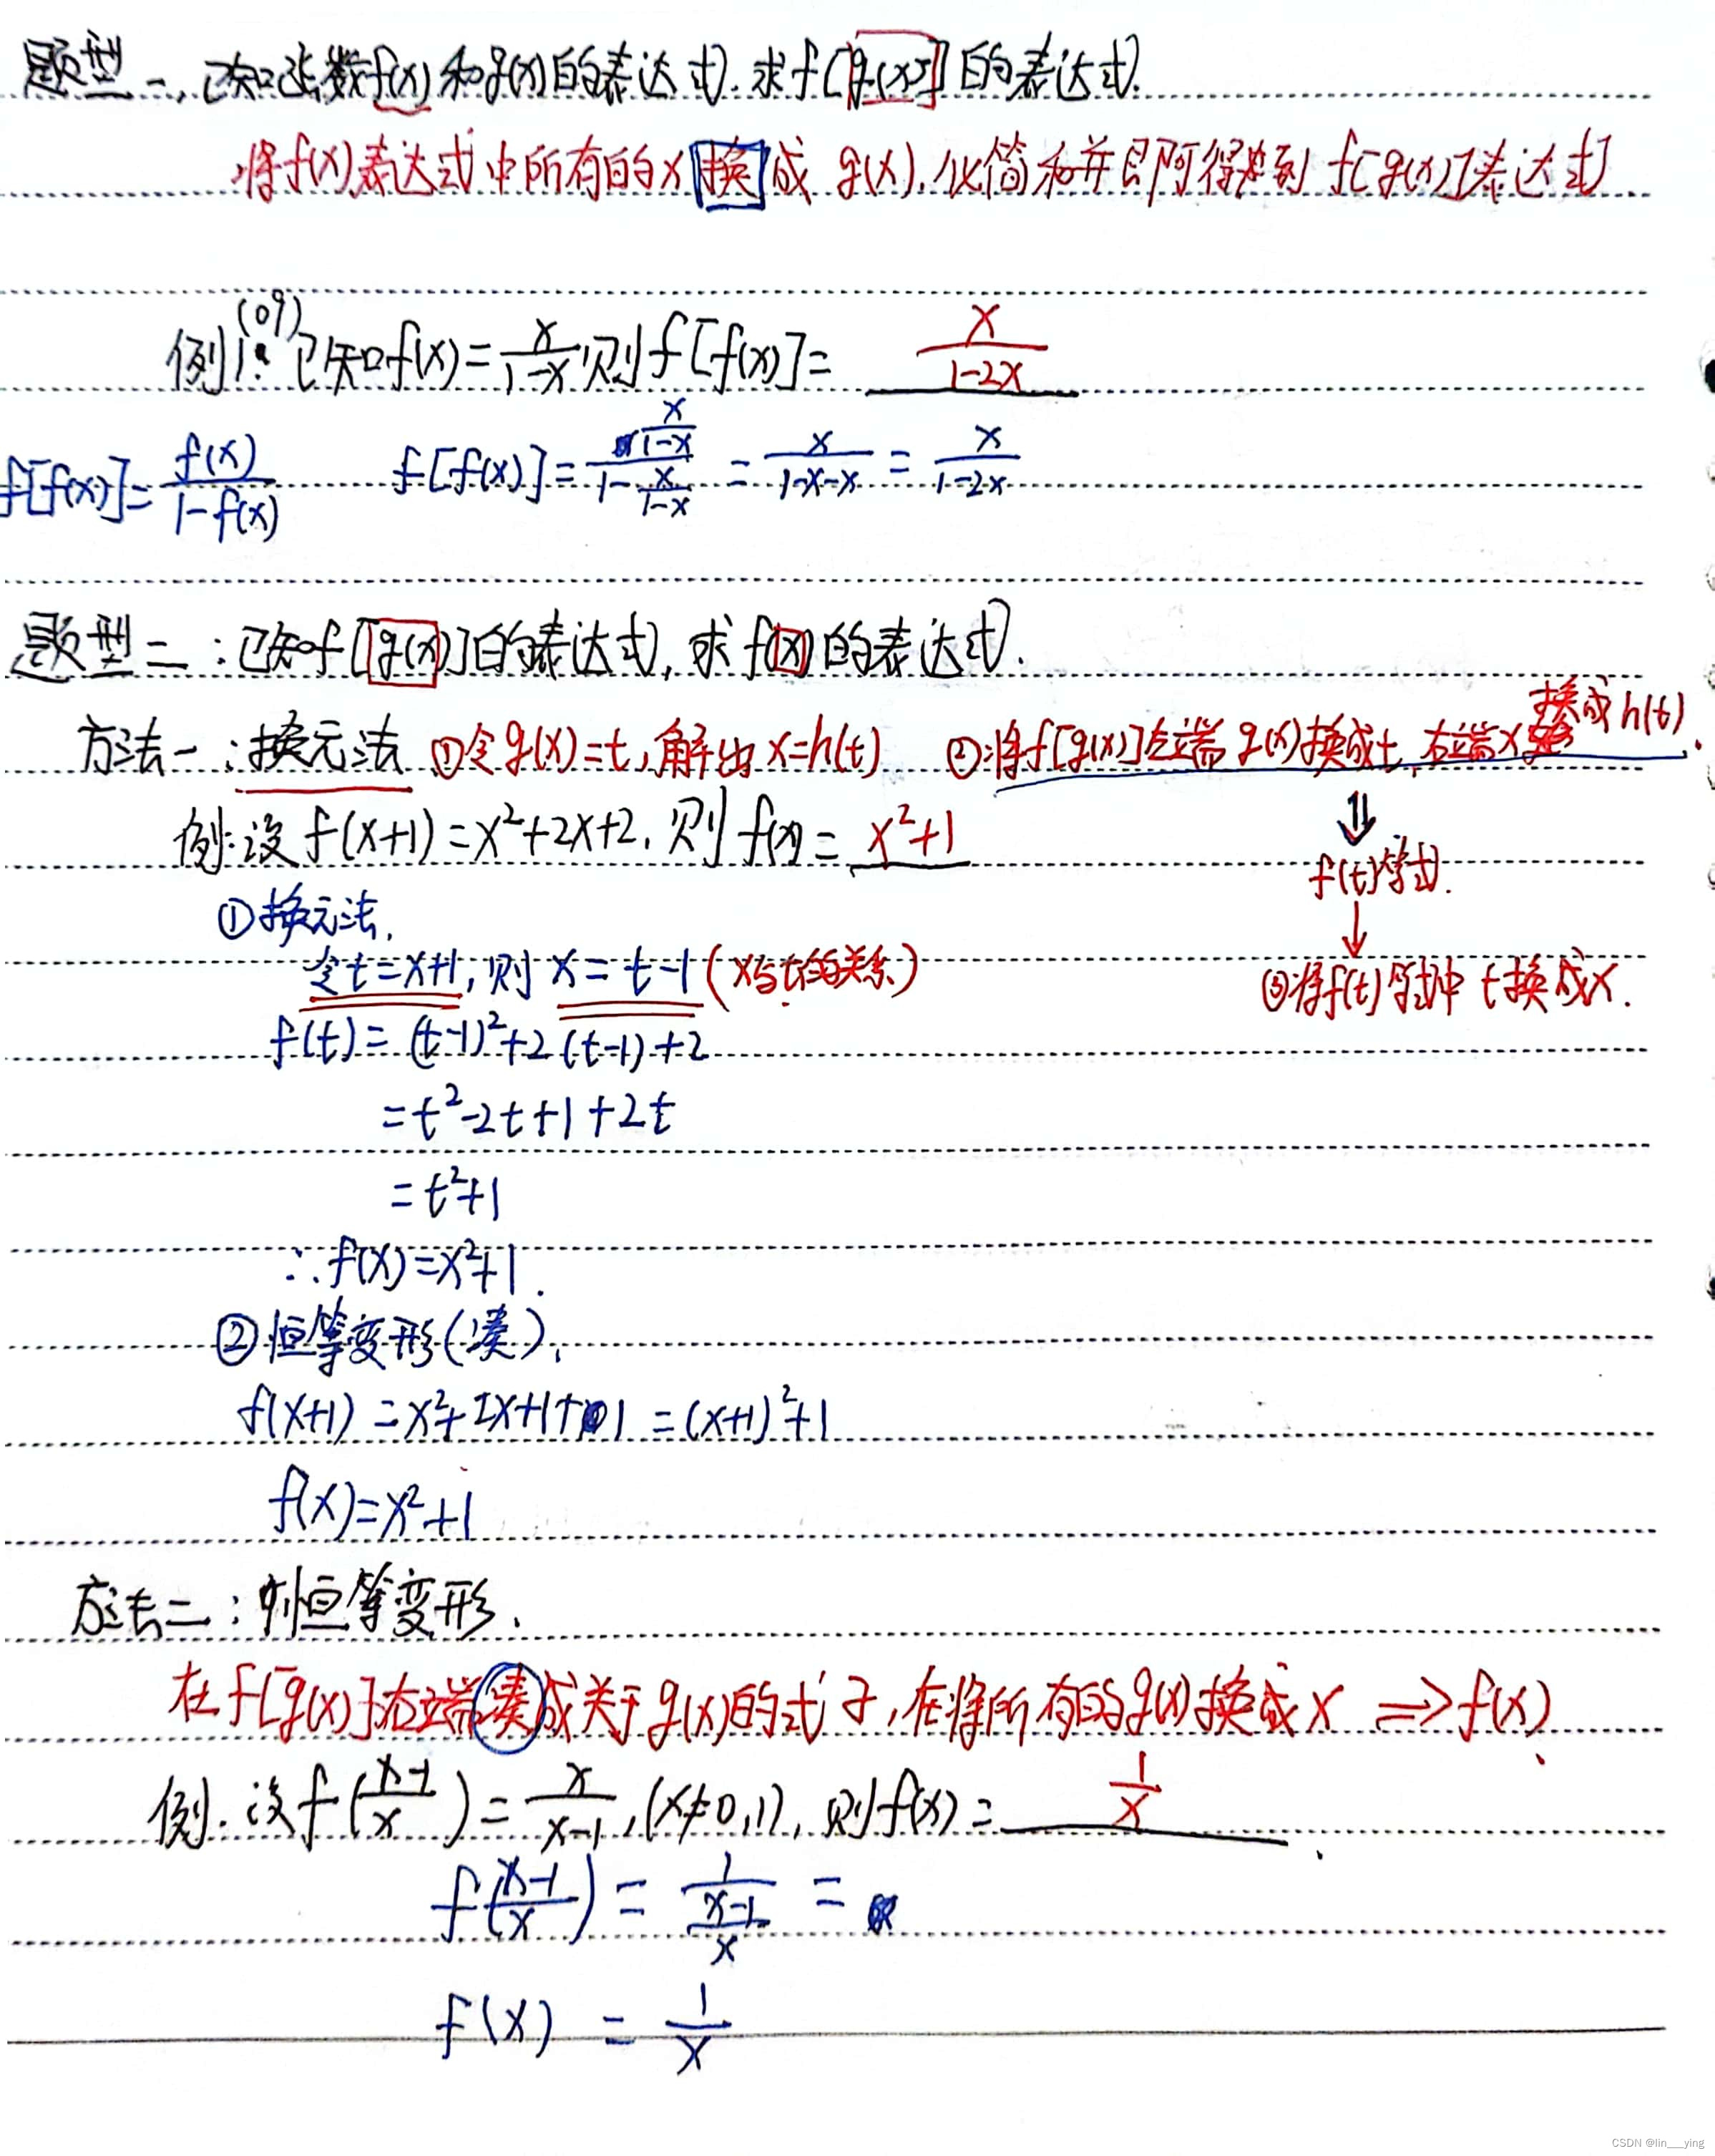 题型一、已知函数f(x)和g(x)的表达式.求f[g(x)]的表达式.
将f(x)表达式中所有的x换成g(x),化简合并即可得到f[g(x)]表达式
(09)
例1: 已知f(x)=x/(1-x),则f[f(x)]= x/(1-2x)
f[f(x)]=f(x)/(1-f(x)) f[f(x)]=(x/(1-x))/(1-x/(1-x))=x/(1-x-x)=x/(1-2x)
题型二:已知f[g(x)]的表达式,求f(x)的表达式.
方法一:换元法 ①令g(x)=t,解出x=h(t) ②将f[g(x)]左端g(x)换成t,右端x换成h(t).
例:设f(x+1)=x²+2x+2,则f(x)=x²+1
⇓
f(t)等式.
↓
③将f(t)等式中t换成x.
①换元法.
令t=x+1,则x=t-1(x与t的关系)
f(t)=(t-1)²+2(t-1)+2
=t²-2t+1+2t
=t²+1
∴f(x)=x²+1.
②恒等变形(凑).
f(x+1)=x²+2x+1+1=(x+1)²+1
f(x)=x²+1
方法二:恒等变形.
在f[g(x)]右端凑成关于g(x)的式子,在将所有的g(x)换成x ⇒f(x).
例.设f((x-1)/x)=x/(x-1),(x≠0,1),则f(x)=1/x.
f((x-1)/x)=1/((x-1)/x)=
f(x)=1/x
CSDN @lin___ying